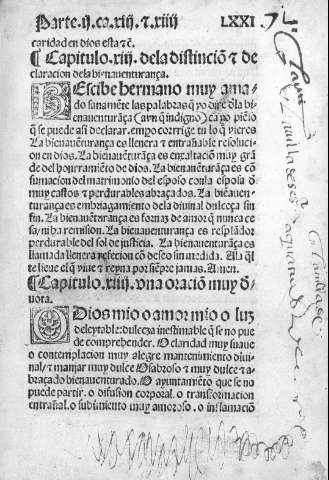 Parte.ij.ca.xiij.⁊.xiiij    LXXI
caridad en dios esta ⁊c̃.
¶ Capitulo.xiij. dela distinciõ ⁊ de
claracion dela bienauenturança.
REscibe hermano muy ama-
do sanamẽte las palabras q̃ yo dire dla bi-
enauenturãça (aũ q̃ indigno) ca yo piẽso
q̃ se puede assi declarar. empo corrige tu lo q̃ vieres
La bienauẽturãça es llenera ⁊ entrañable resoluci-
on en dios. La bienauẽturãça es exaltaciõ muy grã
de del honrramiẽto de dios. La bienauẽturãça es cõ
sumacion del matrimonio del esposo conla esposa õ
muy castos ⁊ perdurables abraçados. La biẽauen-
turança es embriagamiento dela diuinal dulceça sin
fin. La bienauẽturãça es fornaz de amor q̃ nunca ce
sa, ni ha remission. La bienauenturança es resplãdor
perdurable del sol de justicia. La bienauẽturãça es
llamada llenera refecion cõ deseo sin medida. Ala ql̃
te lleue el q̃ viue ⁊ reyna por siẽpre jamas. Amen.
¶ Capitulo.xiiij. vna oraciõ muy đ
uota.
O Dios mio o amor mio o luz
deleytable: dulceza inestimable q̃ no se pue
de comprehender. O claridad muy suaue
o contemplacion muy alegre mantenimiento diui-
nal, ⁊ manjar muy dulce O sabroso ⁊ muy dulce ⁊ a-
braçado bienauenturado. O ayuntamiẽto que se no
puede partir. o difusion corporal. o transformacion
entrañal. o subimiento muy amoroso. o inflamaciõ